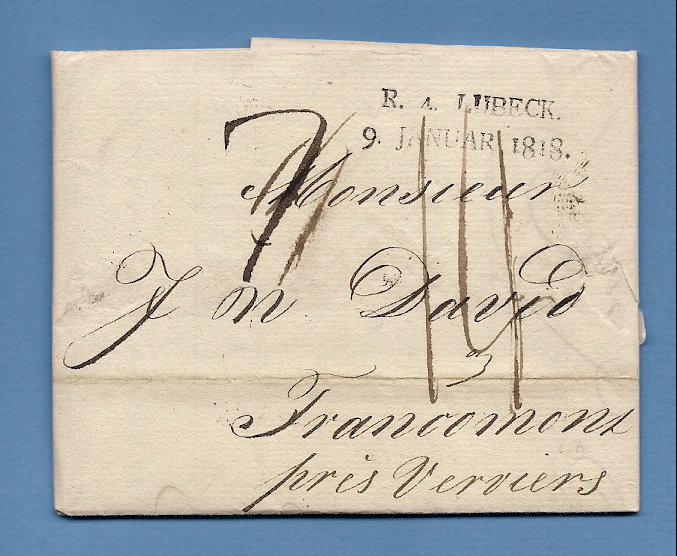 R. 4. LUBECK.
9. JANUAR 1818.
Monsieur
J n David
Francomont
près Verviers